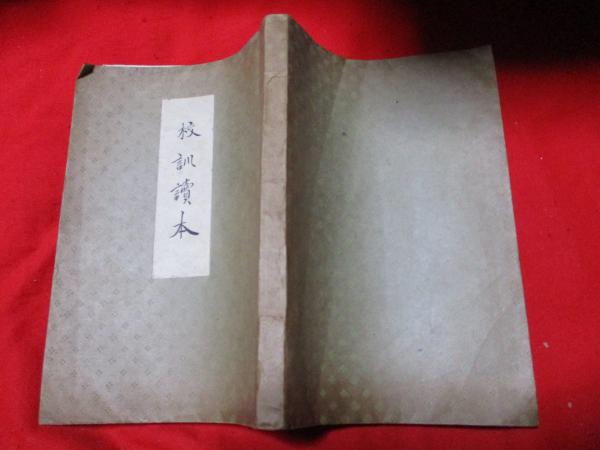 校訓讀本